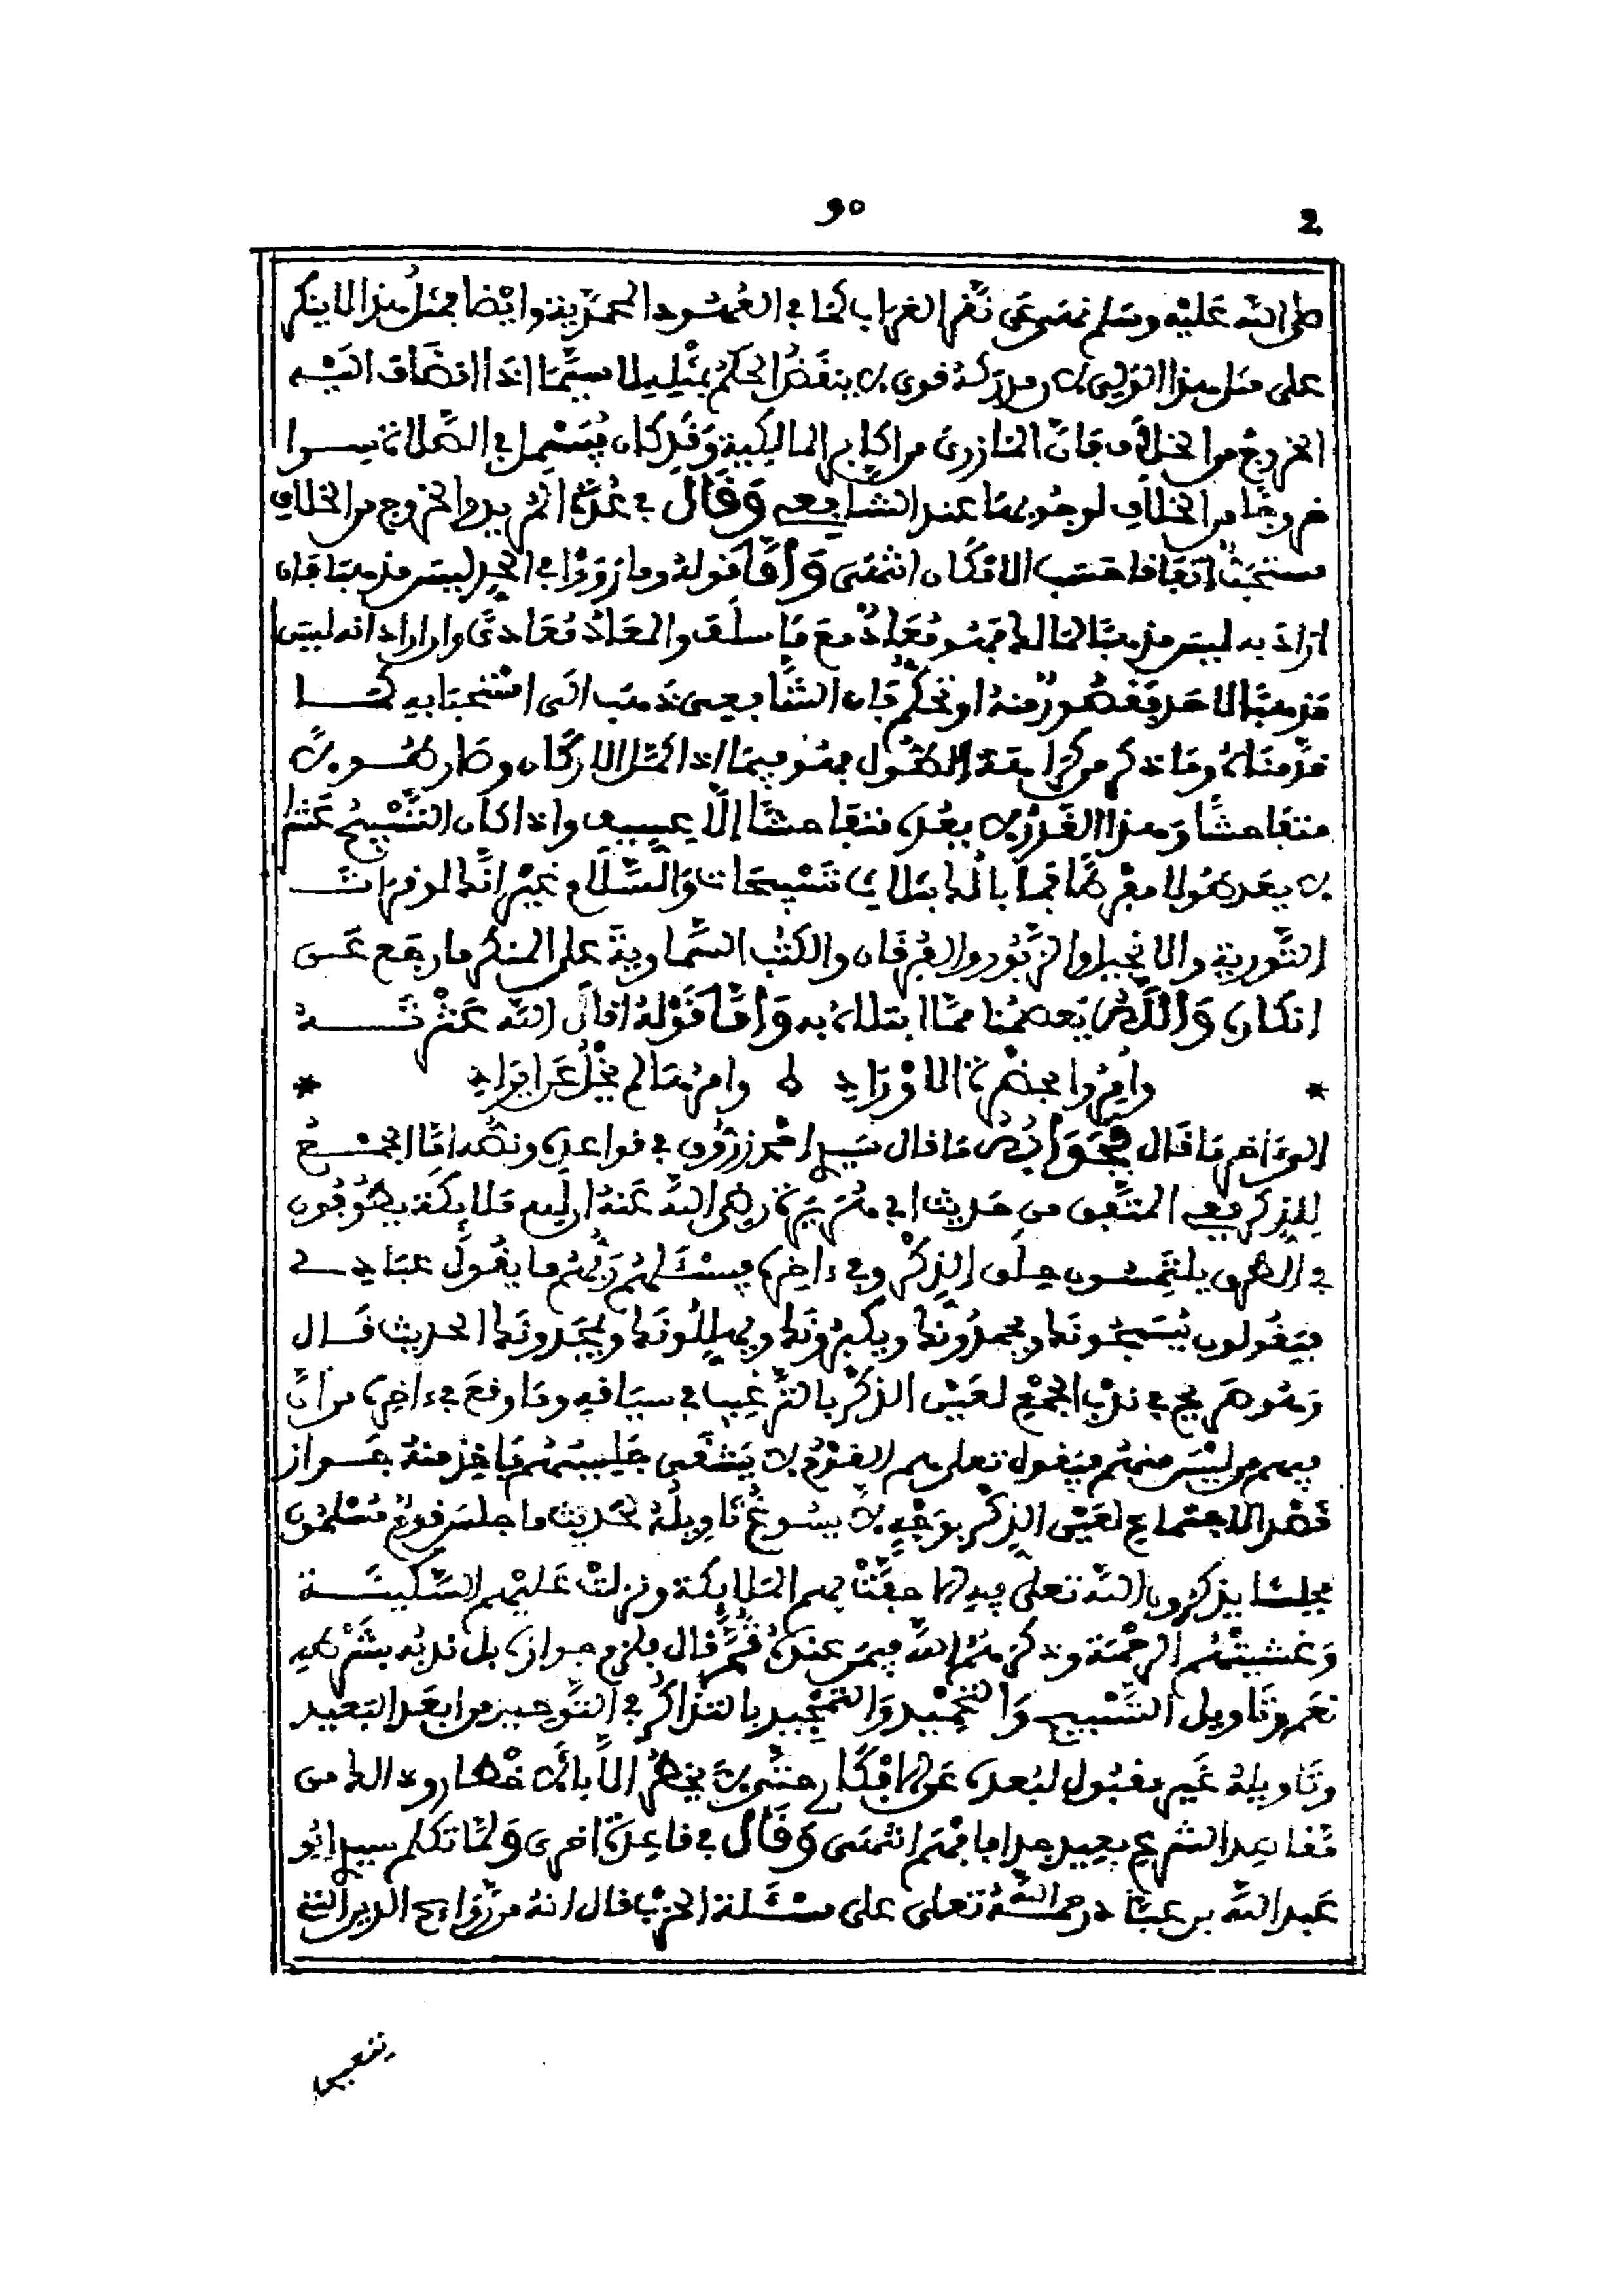 2 90
صلى الله عليه وسلم نهى عن نقر الغراب كما في العهود المحمدية وايضا فمثل هذا لا ينكر
على مثل هذا الولي لان مدركه قوي لا ينقض الحكم بمثله لا سيما اذا انضاف اليه
الخروج من الخلاف فان المازري من اكابر المالكية وقد كان يبسمل في الصلاة سرا
خروجا من الخلاف لوجوبها عند الشافعي وقال في عدة المريد والخروج من الخلاف
مستحب اتفاقا حسب الامكان انتهى واما قوله وما رووا في الحد ليس مذهبا فان
اراد به ليس مذهبا لمالك فهو معاد مع ما سلف والمعاد معادى وان اراد انه ليس
مذهبا لاحد فقصور منه او تحكم فان الشافعي ذهب الى استحبابه كما
قدمناه وما ذكر من كراهة الطول فهو فيما اذا كمل الاركان وصار طوله
متفاحشا وهذا القدر لا يعده متفاحشا الا عييف واذا كان التسبيح عشرا
لا يعد طولا مفرطا فما بالك بثلاث تسبيحات والسلام غير انك لو قرات
التورية والانجيل والزبور والفرقان والكتب السماوية على المنكر ما رجع عن
انكاره والله يعصمنا مما ابتلاه به واما قوله اقال الله عثرته
* وامروا بحضرة الاوراد ه وامرها لم يخل عن ايراد *
الى ءاخر ما قال فجوابه ما قال سيد احمد زروق في قواعده ونصه اما الجمع
للذكر ففي المتفق من حديث ابي هريرة رضي الله عنه ان لله ملائكة يطوفون
في الطرق يلتمسون حلق الذكر وفي ءاخره فيسئلهم ربهم ما يقول عبادي
فيقولون يسبحونك ويحمدونك ويكبرونك ويهللونك ويمجدونك الحديث قال
وهو صريح في ندب الجمع لعين الذكر بالترغيب في سياقه وما وقع في ءاخره من ان
فيهم من ليس منهم فيقول تعلى هم القوم لا يشقى جليسهم فاخذ منه جواز
قصد الاجتماع لعين الذكر بوجه لا يسوغ تاويله لحديث ما جلس قوم مسلمون
مجلسا يذكرون الله تعلى فيه الا حفت بهم الملائكة ونزلت عليهم السكينة
وغشيتهم الرحمة وذكرهم الله فيمن عنده ثم قال فلزم جوازه بل ندبه بشرطه
نعم وتاويل التسبيح والتحميد والتمجيد بالتذاكر في التوحيد من ابعد البعيد
وتاويله غير مقبول لبعده عن الافكار حتى لا يخطر الا بالاخطار وذلك من
مقاصد الشرع بعيد جدا فافهم انتهى وقال في قاعدة اخرى ولما تكلم سيد ابو
عبد الله بن عباد رحمه الله تعلى على مسئلة الحزب قال انه من روايح الدين التي
يتعين